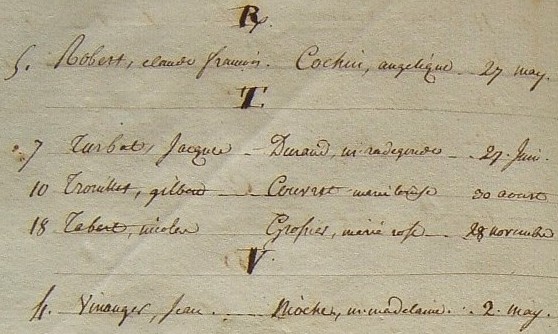 R.
5. Robert, claude francois. Cochin, angelique 27 may.
T
7 Turbat, Jacque Durand, m. radegonde 27 Juin.
10 Trouillet, gilbert Couvert marie louise 30 aoust
18 Tabert, nicolas Grosprés, marie rose 28 novembre
V.
4. Vinanger, Jean. Rioche, m. madelaine. 2. may.